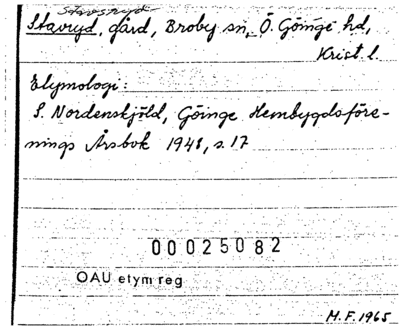 Stavsryd
Stavryd, gård, Broby sn, Ö. Göinge hd,
Krist. l.
Etymologi:
S. Nordenskjöld, Göinge Hembygdsföre-
nings Årsbok 1948, s. 17
00025082
OAU etym reg
M.F. 1965